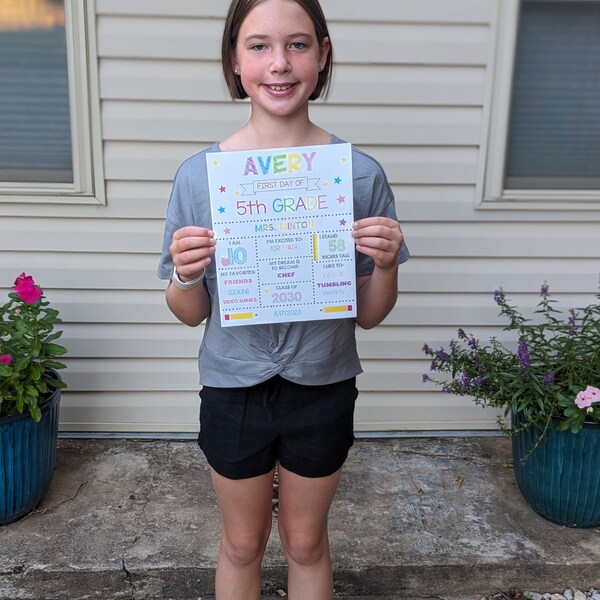 AVERY
FIRST DAY OF
5th GRADE
MRS. MINTON
I AM
10
I'M EXCITED TO:
FOR SKATE
I STAND
58
INCHES TALL
MY FAVORITES:
FRIENDS
COOKING
VIDEO GAMES
MY DREAM IS
TO BECOME:
CHEF
CLASS OF
2030
I LIKE TO:
TUMBLING
WATCH TV
8/17/2023